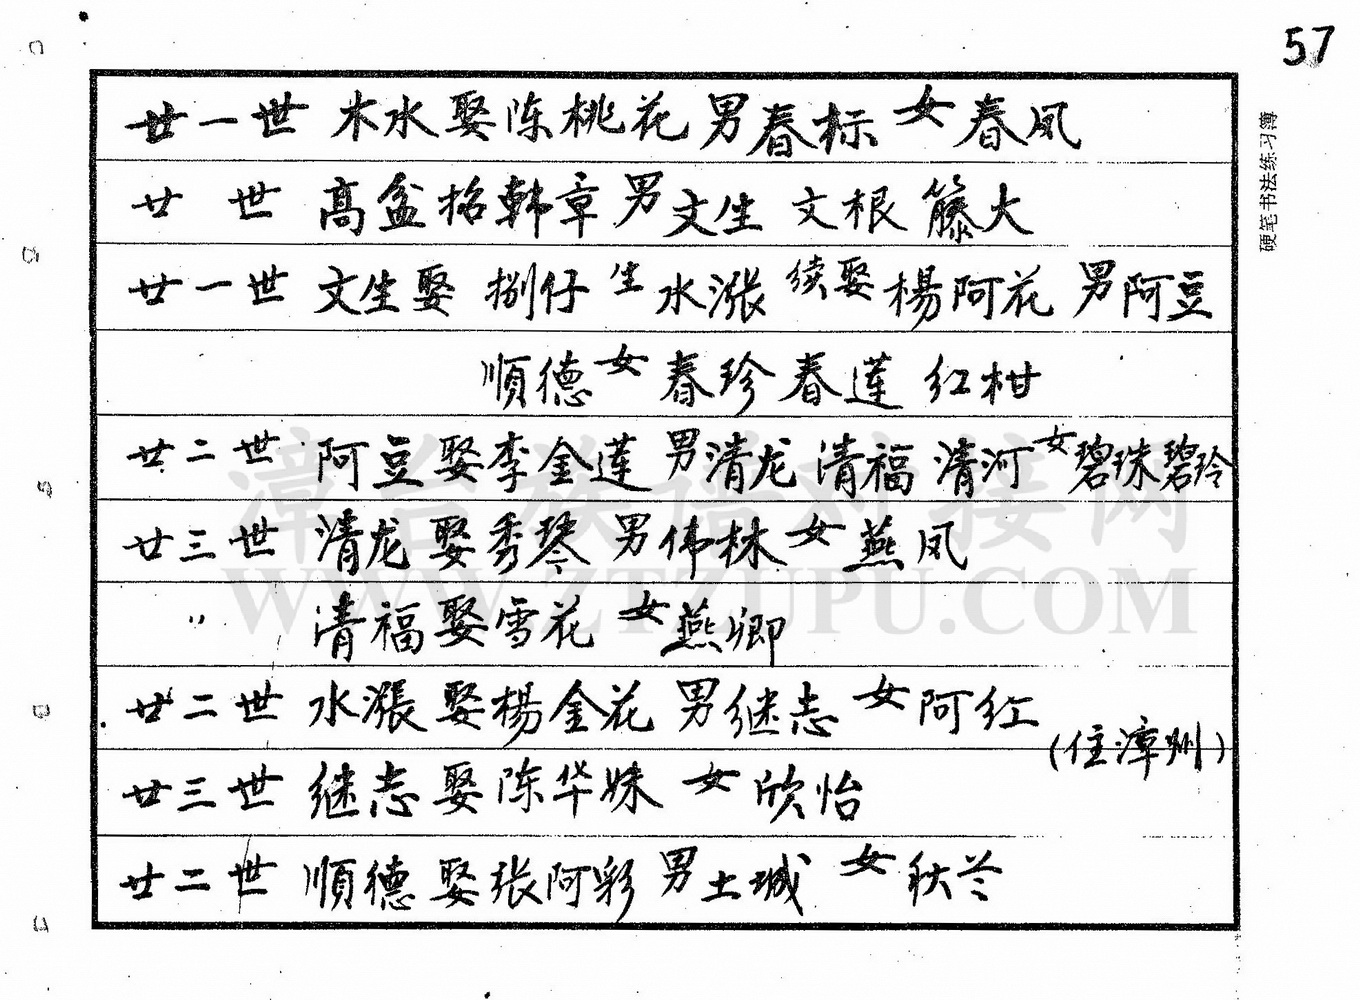 57
硬笔书法练习薄
廿一世 木水娶陈桃花 男春标 女春凤
廿 世 高盆招韩章 男文生 文根 籐大
廿一世 文生娶 捌仔 生水漲 续娶楊阿花 男阿豆
順德 女春珍 春莲 红柑
廿二世 阿豆娶李金莲 男清龙 清福 清河 女碧珠 碧玲
廿三世 清龙娶秀琴 男伟林 女燕凤
〃 清福娶雪花 女燕卿
廿二世 水漲娶楊金花 男继志 女阿红
(住漳州)
廿三世 继志娶陈华妹 女欣怡
廿二世 順德娶张阿彩 男土城 女秋兰
漳台族谱对接网
WWW.ZTZUPU.COM